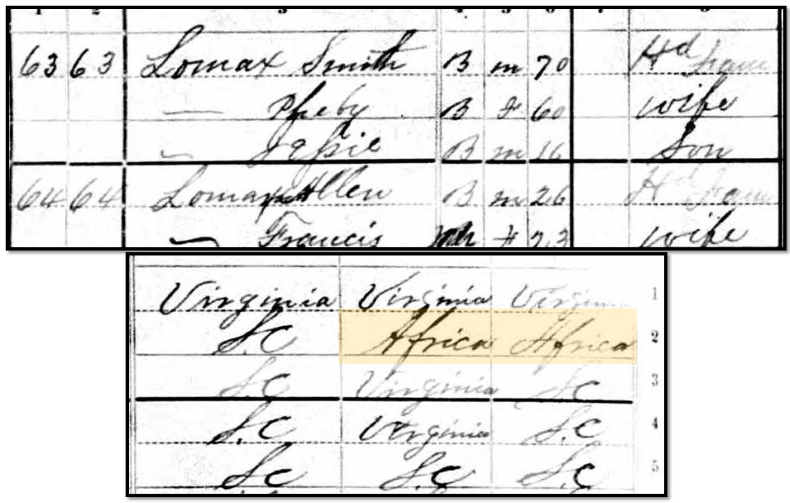 63 63 Lomax Smith B m 70 Hd Fam
— Pheby B F 60 wife
— Jessie B m 16 Son
64 64 Lomax Allen B m 26 Hd Fam
— Francis F 23 wife
Virginia Virginia Virginia 1
S.C Africa Africa 2
S.C Virginia S.C 3
S.C Virginia S.C 4
S.C S.C S.C 5